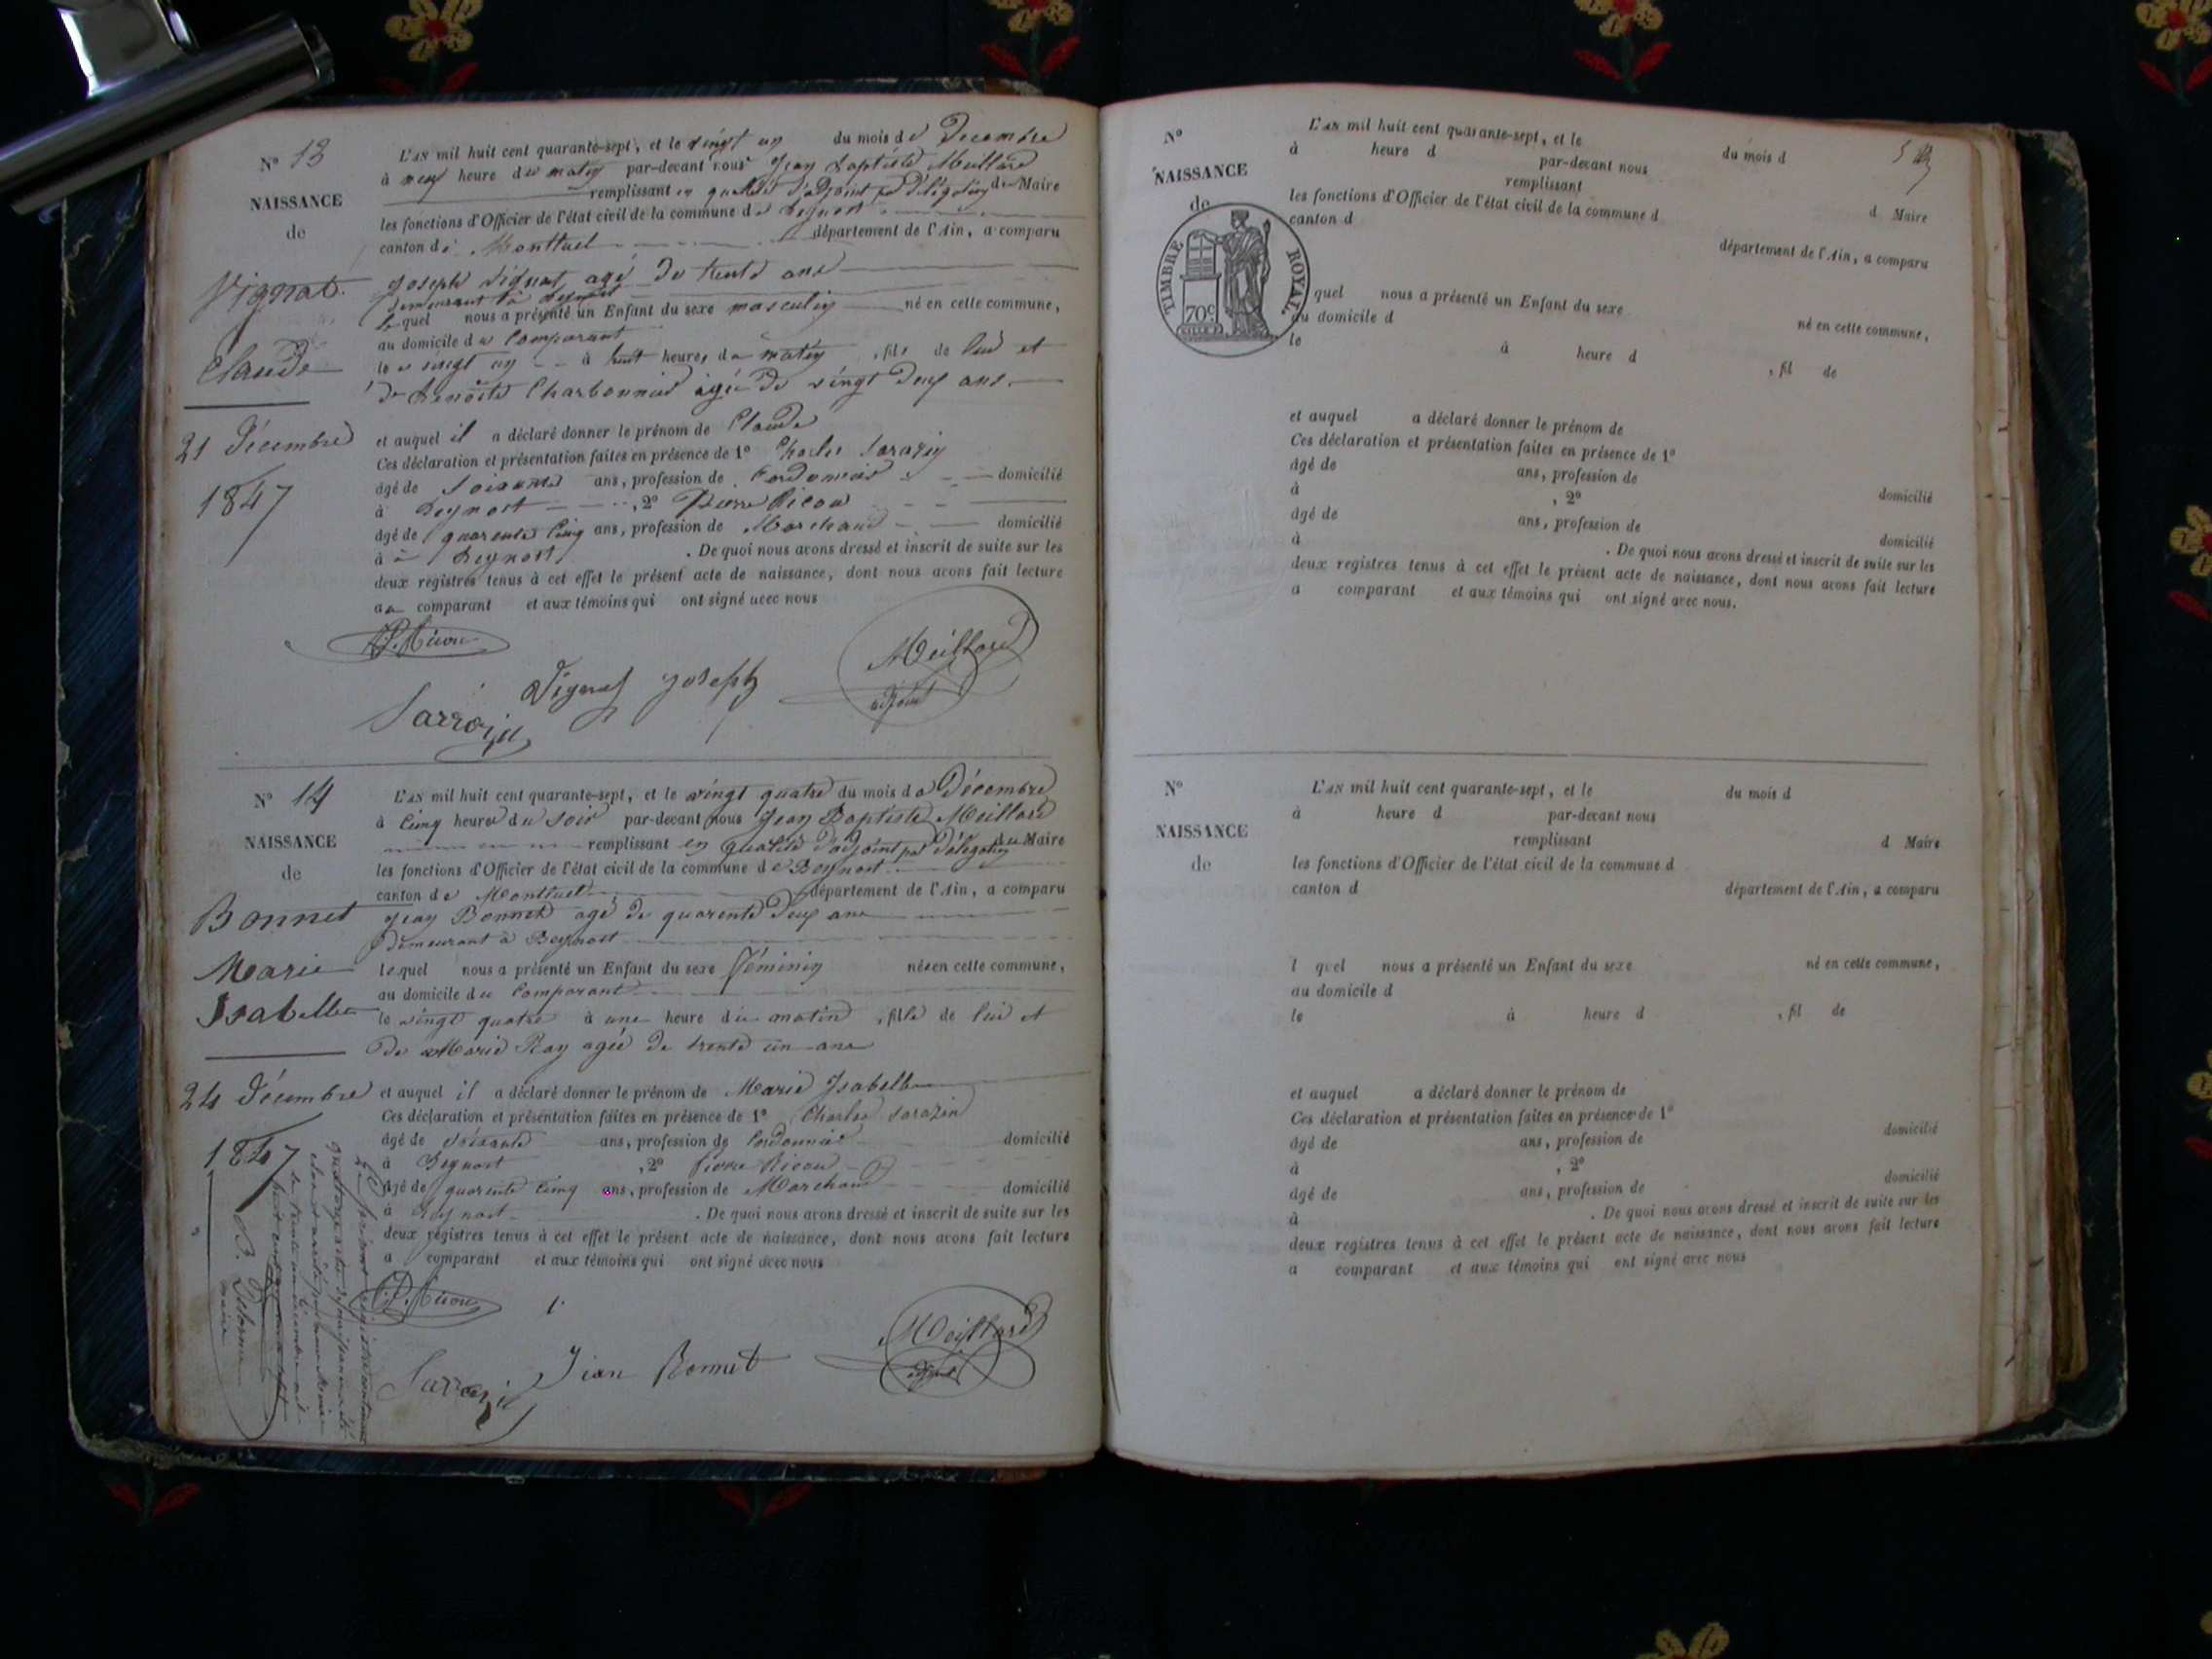 N° 13
NAISSANCE
de
Vignat
Claude
21 Décembre
1847
L'AN mil huit cent quarante-sept, et le vingt un du mois de Decembre
à neuf heure du matin par-devant nous Jean Baptiste Meillard
remplissant en qualité d'adjoint par délégation du Maire
les fonctions d'Officier de l'état civil de la commune de Beynost
canton de Montluel département de l'Ain, a comparu
Joseph Vignat agé de trente ans
demeurant à Beynost
Lequel nous a présenté un Enfant du sexe masculin né en cette commune,
au domicile du Comparant
le vingt un à huit heures du matin, fils de lui et
de Benoite Charbonnier agée de vingt deux ans.
et auquel il a déclaré donner le prénom de Claude
Ces déclaration et présentation faites en présence de 1° Charles Sarazin
âgé de soixante ans, profession de Cordonnier domicilié
à Beynost, 2° Pierre Ricou
âgé de quarente cinq ans, profession de Marchand domicilié
à Beynost. De quoi nous avons dressé et inscrit de suite sur les
deux registres tenus à cet effet le présent acte de naissance, dont nous avons fait lecture
au comparant et aux témoins qui ont signé avec nous
Meillard
adjoint
Vignat joseph
Sarrazin
N° 14
NAISSANCE
de
Bonnet
Marie
Isabelle
24 Décembre
1847
L'AN mil huit cent quarante-sept, et le vingt quatre du mois de Décembre
à Cinq heures du soir par-devant nous Jean Baptiste Meillard
remplissant en qualité d'adjoint par délégation du Maire
les fonctions d'Officier de l'état civil de la commune de Beynost
canton de Montluel département de l'Ain, a comparu
Jean Bonnet agé de quarente deux ans
demeurant à Beynost
lequel nous a présenté un Enfant du sexe féminin née en cette commune,
au domicile du Comparant
le vingt quatre à une heure du matin, fille de lui et
de Marie Ray agée de trente un ans
et auquel il a déclaré donner le prénom de Marie Isabelle
Ces déclaration et présentation faites en présence de 1° Charles Sarazin
âgé de soixante ans, profession de Cordonnier domicilié
à Beynost, 2° Pierre Ricou
âgé de quarente cinq ans, profession de Marchand domicilié
à Beynost. De quoi nous avons dressé et inscrit de suite sur les
deux registres tenus à cet effet le présent acte de naissance, dont nous avons fait lecture
a comparant et aux témoins qui ont signé avec nous
Meillard
adjoint
Jean Bonnet
Sarrazin
maire
N°
NAISSANCE
de
TIMBRE ROYAL
70c
L'AN mil huit cent quarante-sept, et le du mois d
à heure d par-devant nous
remplissant d Maire
les fonctions d'Officier de l'état civil de la commune d
canton d département de l'Ain, a comparu
quel nous a présenté un Enfant du sexe né en cette commune,
au domicile d
le à heure d, fil de
et auquel a déclaré donner le prénom de
Ces déclaration et présentation faites en présence de 1°
âgé de ans, profession de domicilié
à, 2°
âgé de ans, profession de domicilié
à. De quoi nous avons dressé et inscrit de suite sur les
deux registres tenus à cet effet le présent acte de naissance, dont nous avons fait lecture
a comparant et aux témoins qui ont signé avec nous.
N°
NAISSANCE
de
L'AN mil huit cent quarante-sept, et le du mois d
à heure d par-devant nous
remplissant d Maire
les fonctions d'Officier de l'état civil de la commune d
canton d département de l'Ain, a comparu
l quel nous a présenté un Enfant du sexe né en cette commune,
au domicile d
le à heure d, fil de
et auquel a déclaré donner le prénom de
Ces déclaration et présentation faites en présence de 1°
âgé de ans, profession de domicilié
à, 2°
âgé de ans, profession de domicilié
à. De quoi nous avons dressé et inscrit de suite sur les
deux registres tenus à cet effet le présent acte de naissance, dont nous avons fait lecture
a comparant et aux témoins qui ont signé avec nous